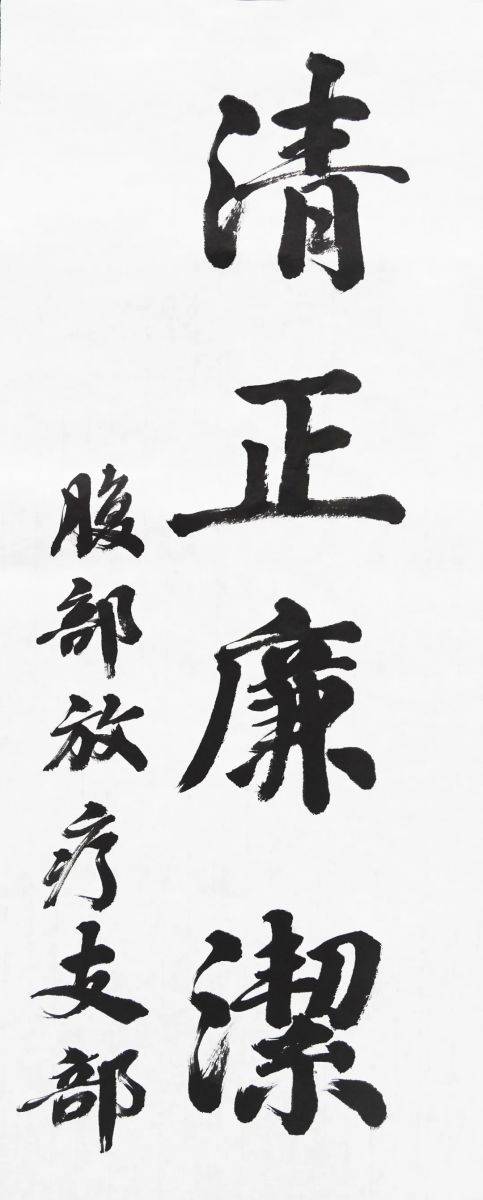 清正廉潔
腹部放疗支部